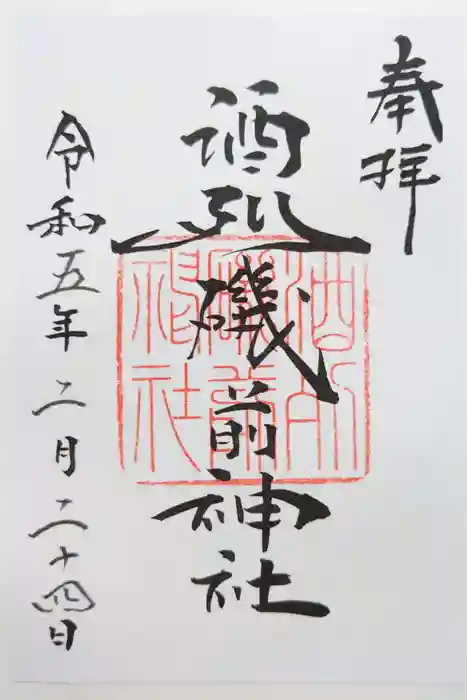 奉拝
酒列磯前神社
令和五年二月二十四日
酒列
磯前
神社